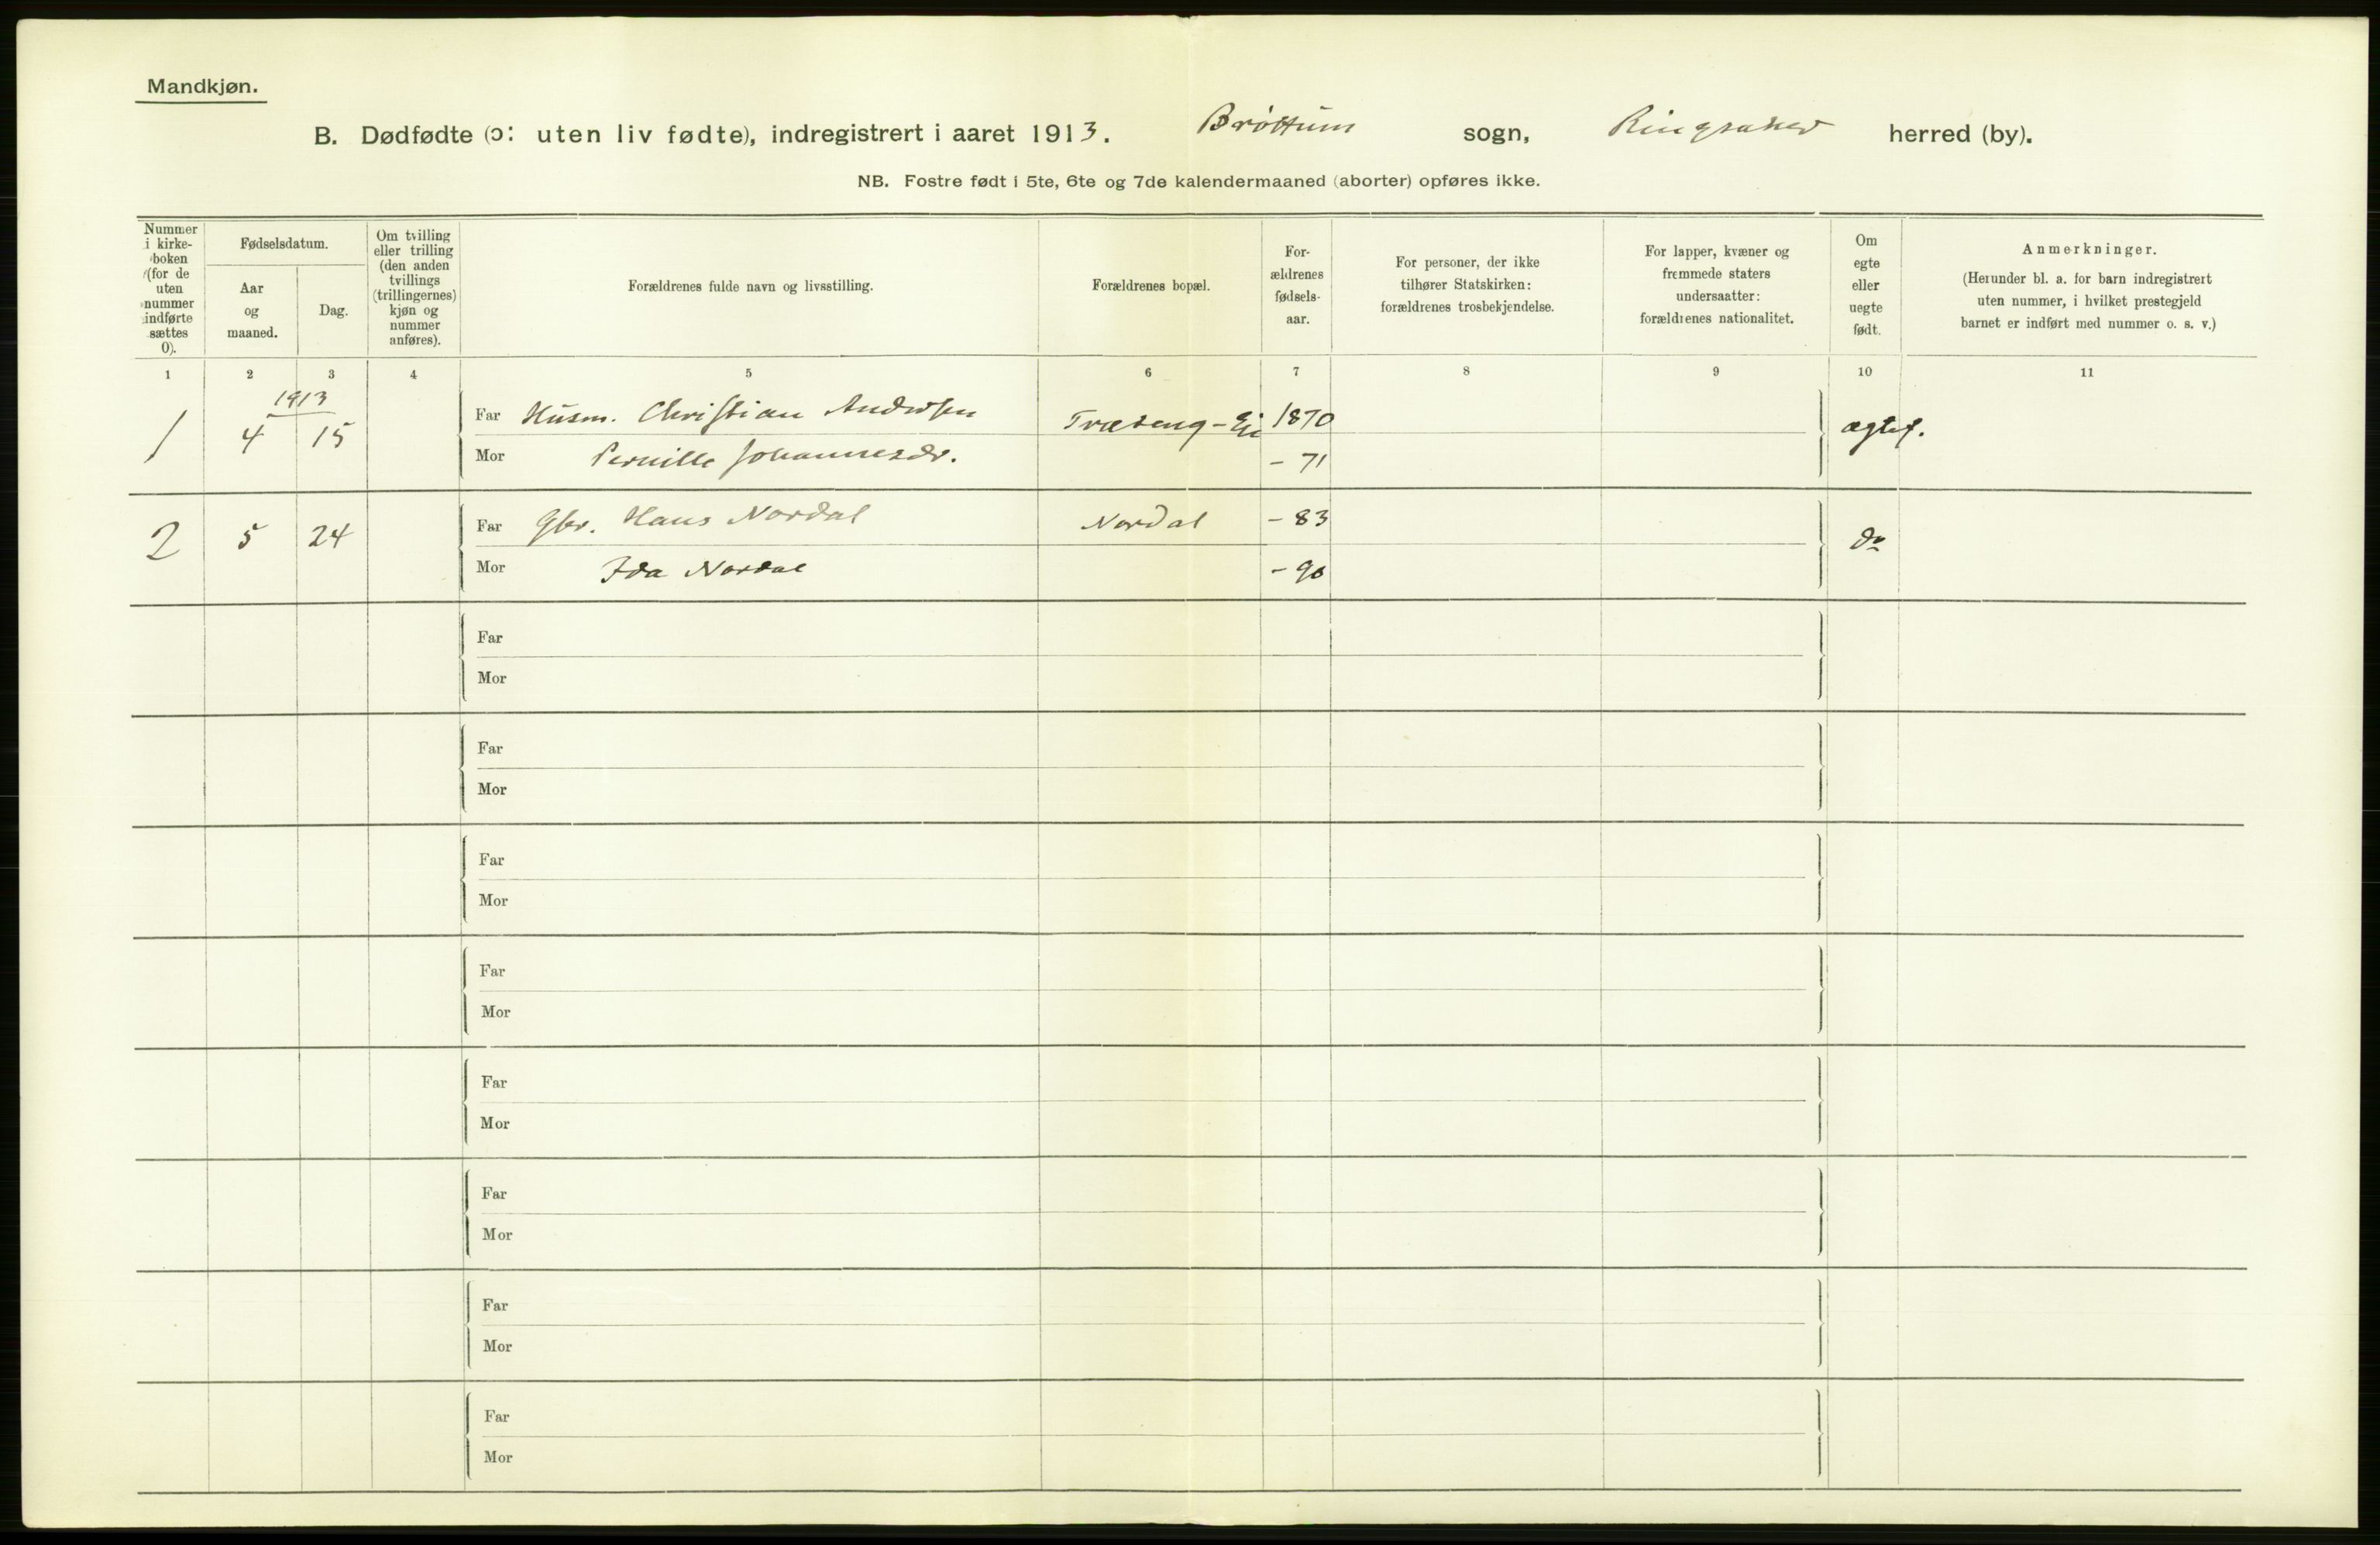 Mandkjøn.
B. Dødfødte (ɔ: uten liv fødte), indregistrert i aaret 1913. Brøttum sogn, Ringsaker herred (by).
NB. Fostre født i 5te, 6te og 7de kalendermaaned (aborter) opføres ikke.
Nummer
i kirke-
boken
(for de
uten
nummer
indførte
sættes
0).
Fødselsdatum.
Aar
og
maaned.
Dag.
Om tvilling
eller trilling
(den anden
tvillings
(trillingernes)
kjøn og
nummer
anføres).
Forældrenes fulde navn og livsstilling.
Forældrenes bopæl.
For-
ældrenes
fødsels-
aar.
For personer, der ikke
tilhører Statskirken:
forældrenes trosbekjendelse.
For lapper, kvæner og
fremmede staters
undersaatter:
forældrenes nationalitet.
Om
egte
eller
uegte
født.
Anmerkninger.
(Herunder bl. a. for barn indregistrert
uten nummer, i hvilket prestegjeld
barnet er indført med nummer o. s. v.)
1 2 3 4 5 6 7 8 9 10 11
1913
1 4 15 Far Husm. Christian Andersen Træseng - 1870 ægtef.
Mor Pernille Johannesdr. - 71
2 5 24 Far Gbr. Hans Nordal Nordal - 83 do
Mor Ida Nordal - 90
Far
Mor
Far
Mor
Far
Mor
Far
Mor
Far
Mor
Far
Mor
Far
Mor
Far
Mor